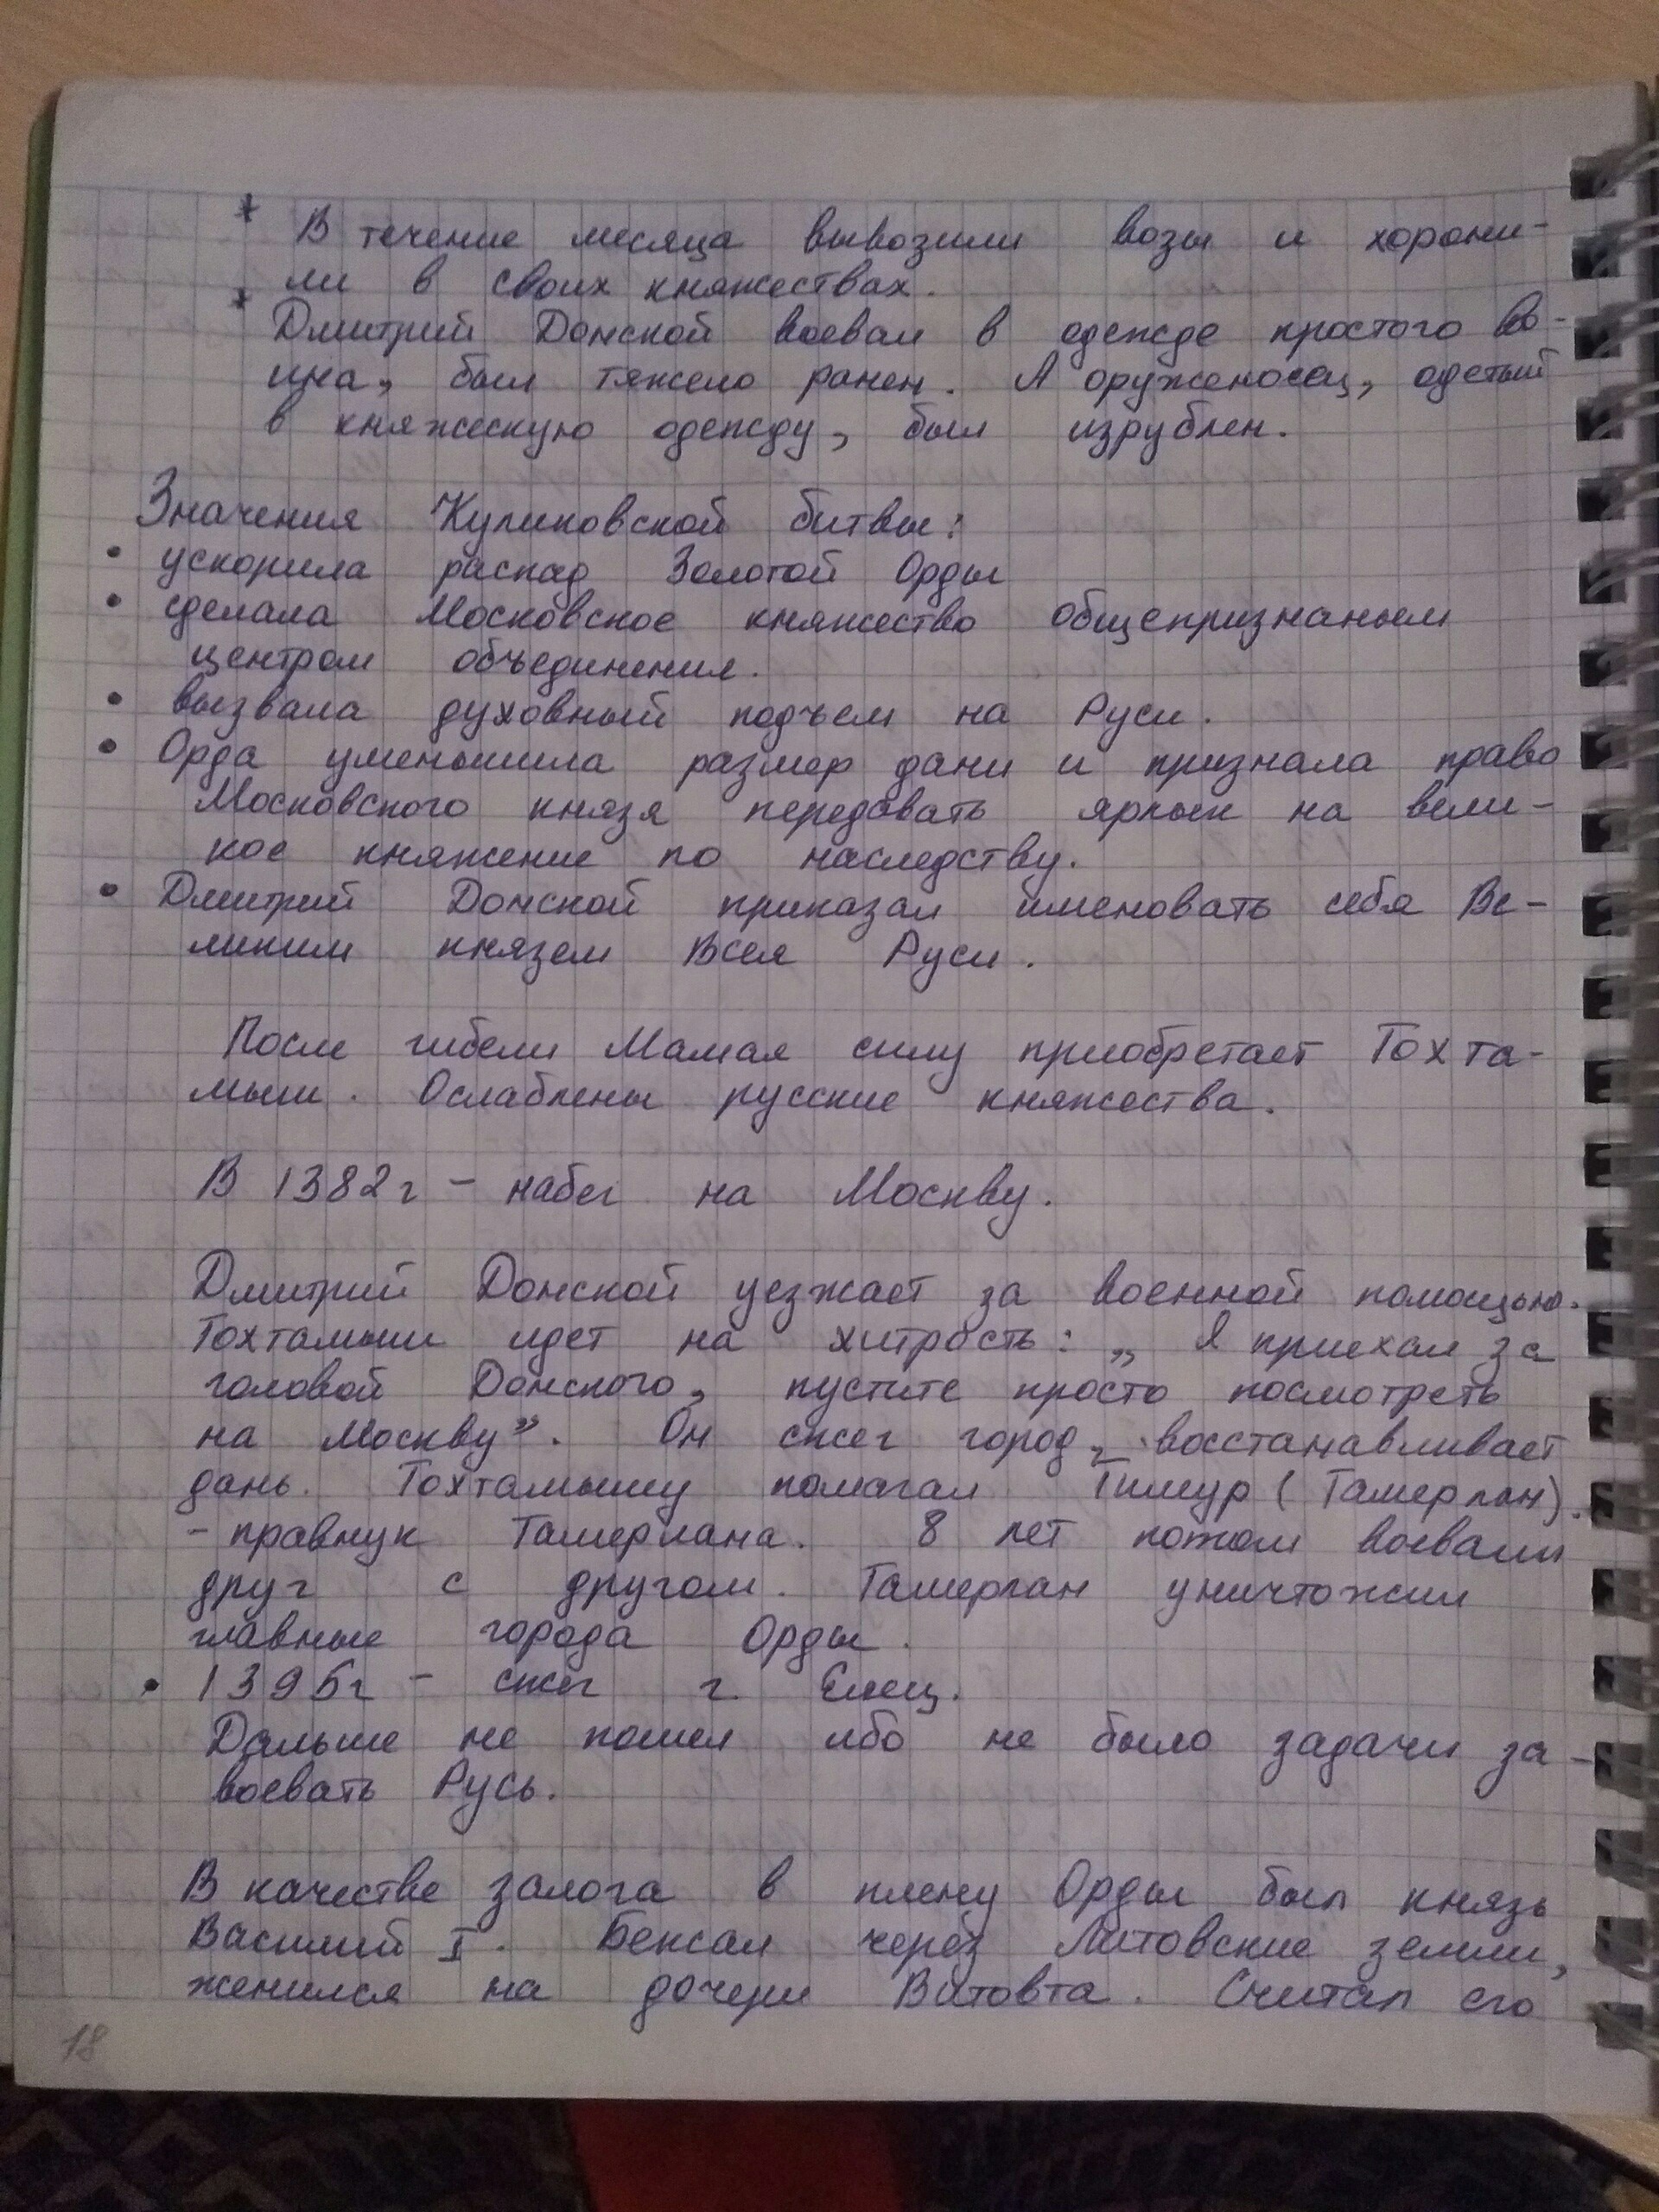 * В течение месяца вывозили возы и хорони-
ли в своих княжествах.
* Дмитрий Донской воевал в одежде простого во-
ина, был тяжело ранен. А оруженосец, одетый
в княжескую одежду, был изрублен.
Значения Куликовской битвы:
• ускорила распад Золотой Орды
• сделала Московское княжество общепризнаным
центром объединения.
• вызвала духовный подъем на Руси.
• Орда уменьшила размер дани и признала право
Московского князя передовать ярлык на вели-
кое княжение по наследству.
• Дмитрий Донской приказал именовать себя Ве-
ликим князем Всея Руси.
После гибели Мамая силу приобретает Тохта-
мыш. Ослаблены русские княжества.
В 1382г - набег на Москву.
Дмитрий Донской уезжает за военной помощью.
Тохтамыш идет на хитрость: „ Я приехал за
головой Донского, пустите просто посмотреть
на Москву". Он сжег город, восстанавливает
дань. Тохтамышу помогал Тимур (Тамерлан).
- правнук Тамерлана. 8 лет потом воевали
друг с другом. Тамерлан уничтожил
главные города Орды.
• 1395г - сжег г. Елец.
Дальше не пошел ибо не было задачи за-
воевать Русь.
В качестве залога в плену Орды был князь
Василий I. Бежал через Литовские земли,
женился на дочери Витовта. Считал его
18